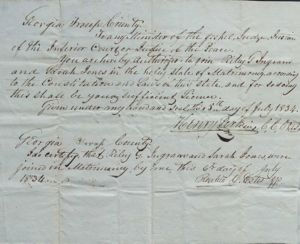 Georgia Troup County
To any Minister of the Gospel, Judge Justice
of the Inferior Court or Justice of the Peace
You are hereby Authorised to join Riley G Ingram
and Sarah Jones in the holy State of Matrimony according
to the Constitution and Laws of this State, and for so doing
this shall be your sufficient License
Given under my hand and Seal this day of July 1834.
Henry C C O
Georgia Troup County
I do certify that Riley G. Ingram and Sarah Jones, were
joined in Matrimony by me, this day of July
1834.